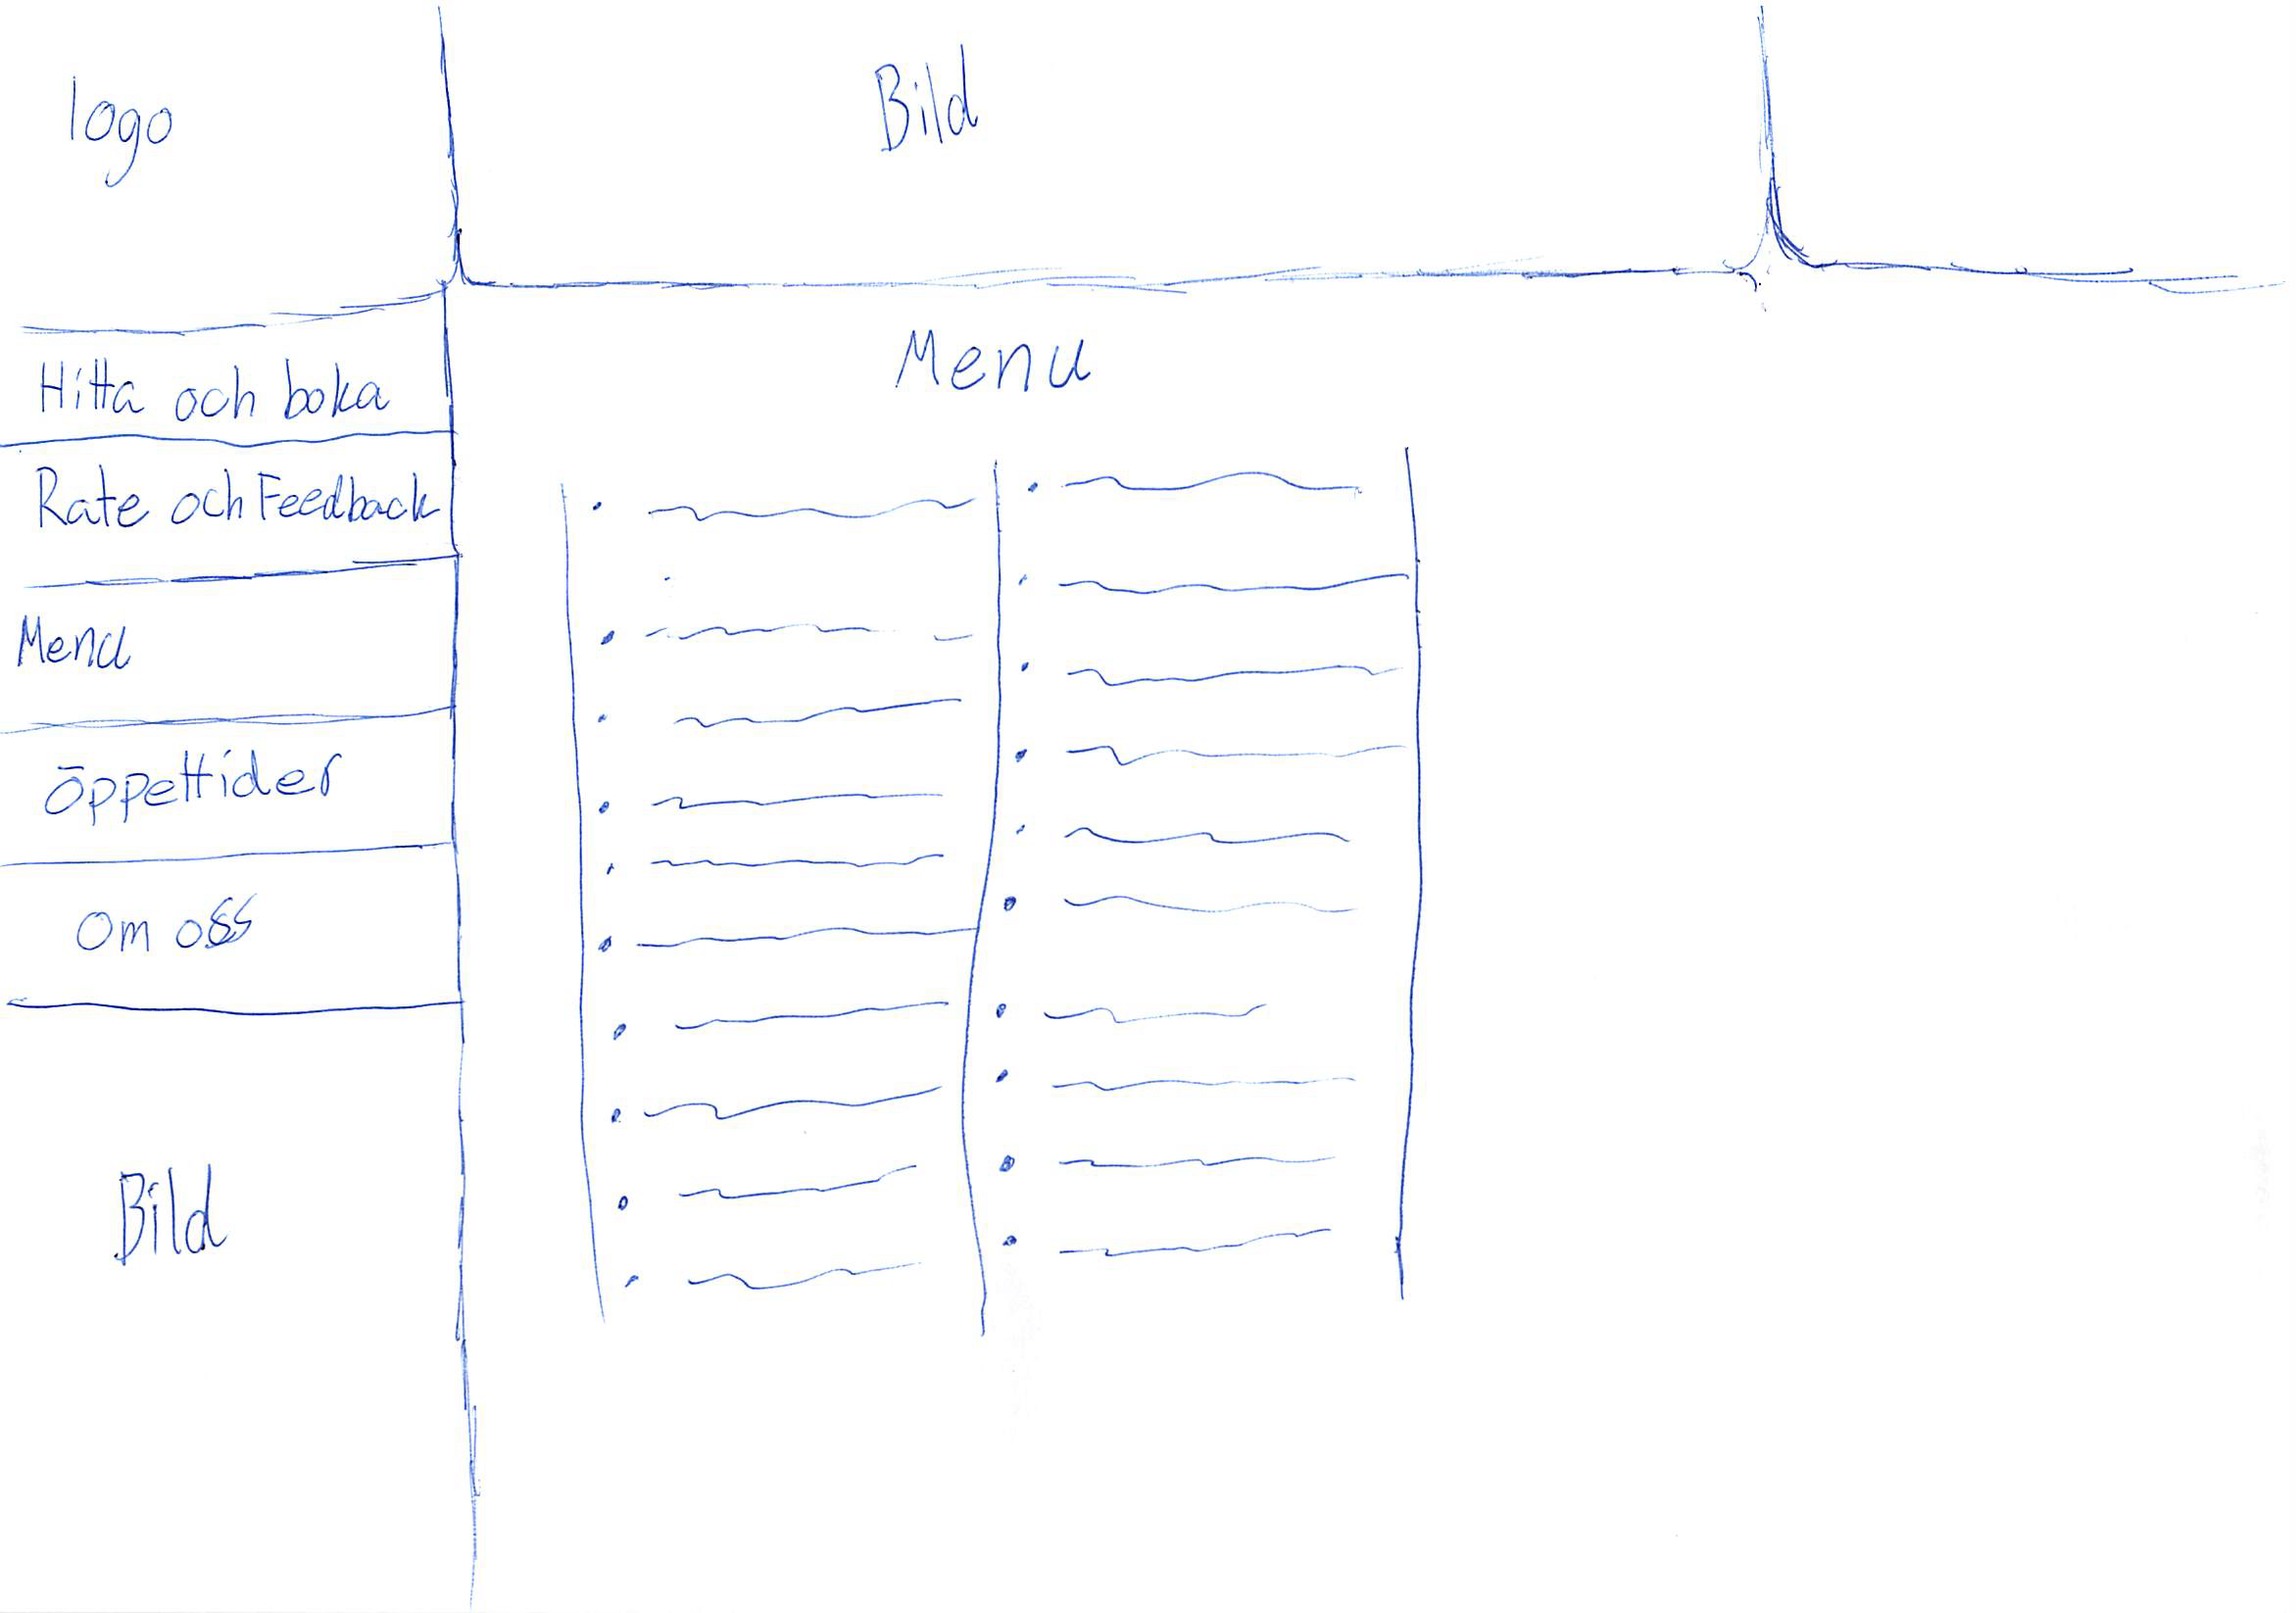 logo
Bild
Hitta och boka
Rate och Feedback
Menu
öppettider
Om oss
Bild
Menu